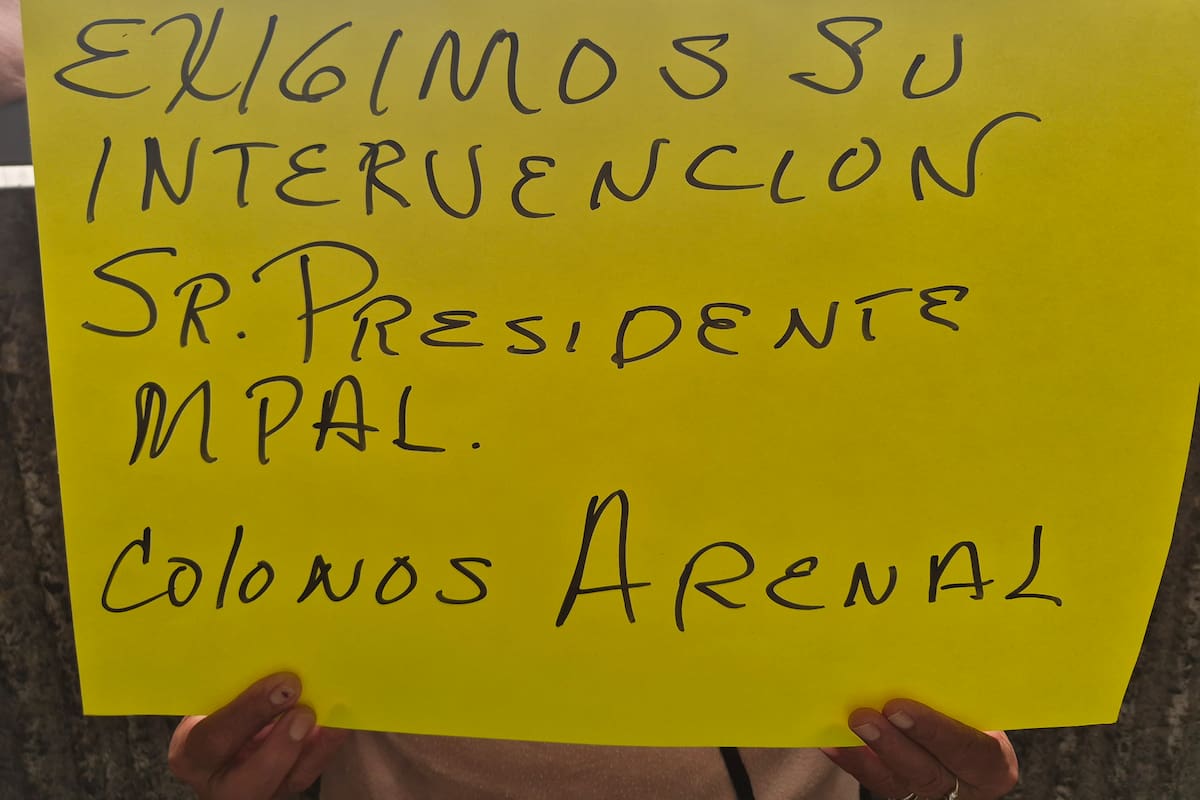 EXIGIMOS SU
INTERVENCION
SR. PRESIDENTE
MPAL.
COLONOS ARENAL